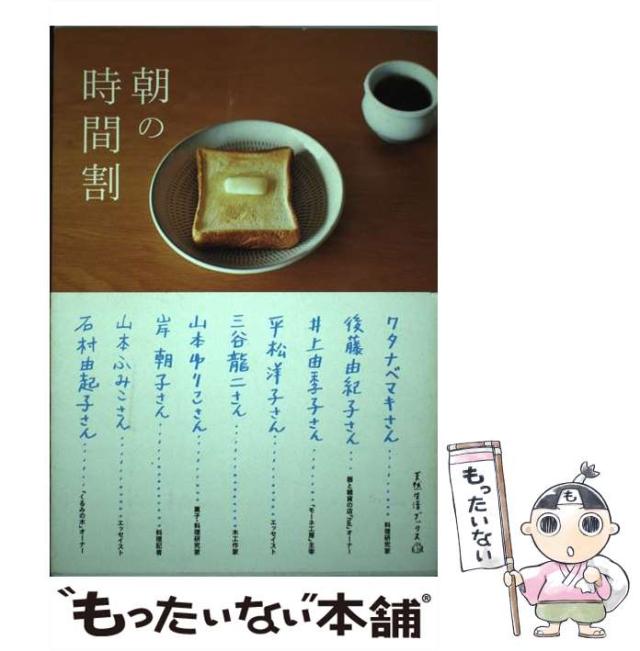 朝の
時間割
ワタナベマキさん………料理研究家
後藤由紀子さん…器と雑貨の店「hal」オーナー
井上由季子さん……「モーネ工房」主宰
平松洋子さん………エッセイスト
三谷龍二さん………木工作家
山本ゆりこさん………菓子・料理研究家
岸朝子さん………料理記者
山本ふみこさん………エッセイスト
石村由起子さん……「くるみの木」オーナー
天然生活ブックス
も
もったいない
"もったいない"本舗®